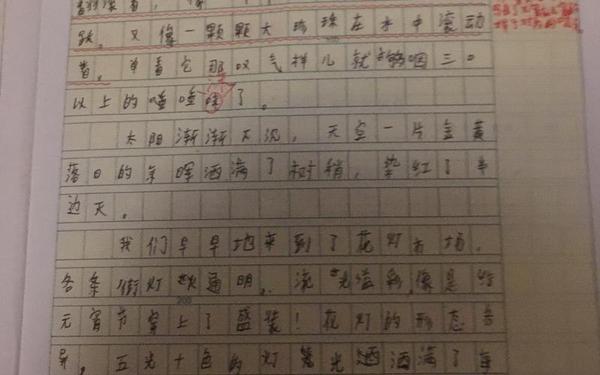 跃。又像一颗颗大珍珠在水中滚动
着。单看它那叹气样儿就够咽三口
以上的唾唾了。
太阳渐渐下沉，天空一片金黄
落日的余晖洒满了树梢，染红了半
边天。
我们早早地来到了花灯市场。
各条街灯火通明，流光溢彩，像是给
元宵节穿上了盛装！花灯的形态各
异，五光十色的灯笼光洒洒满了每
200